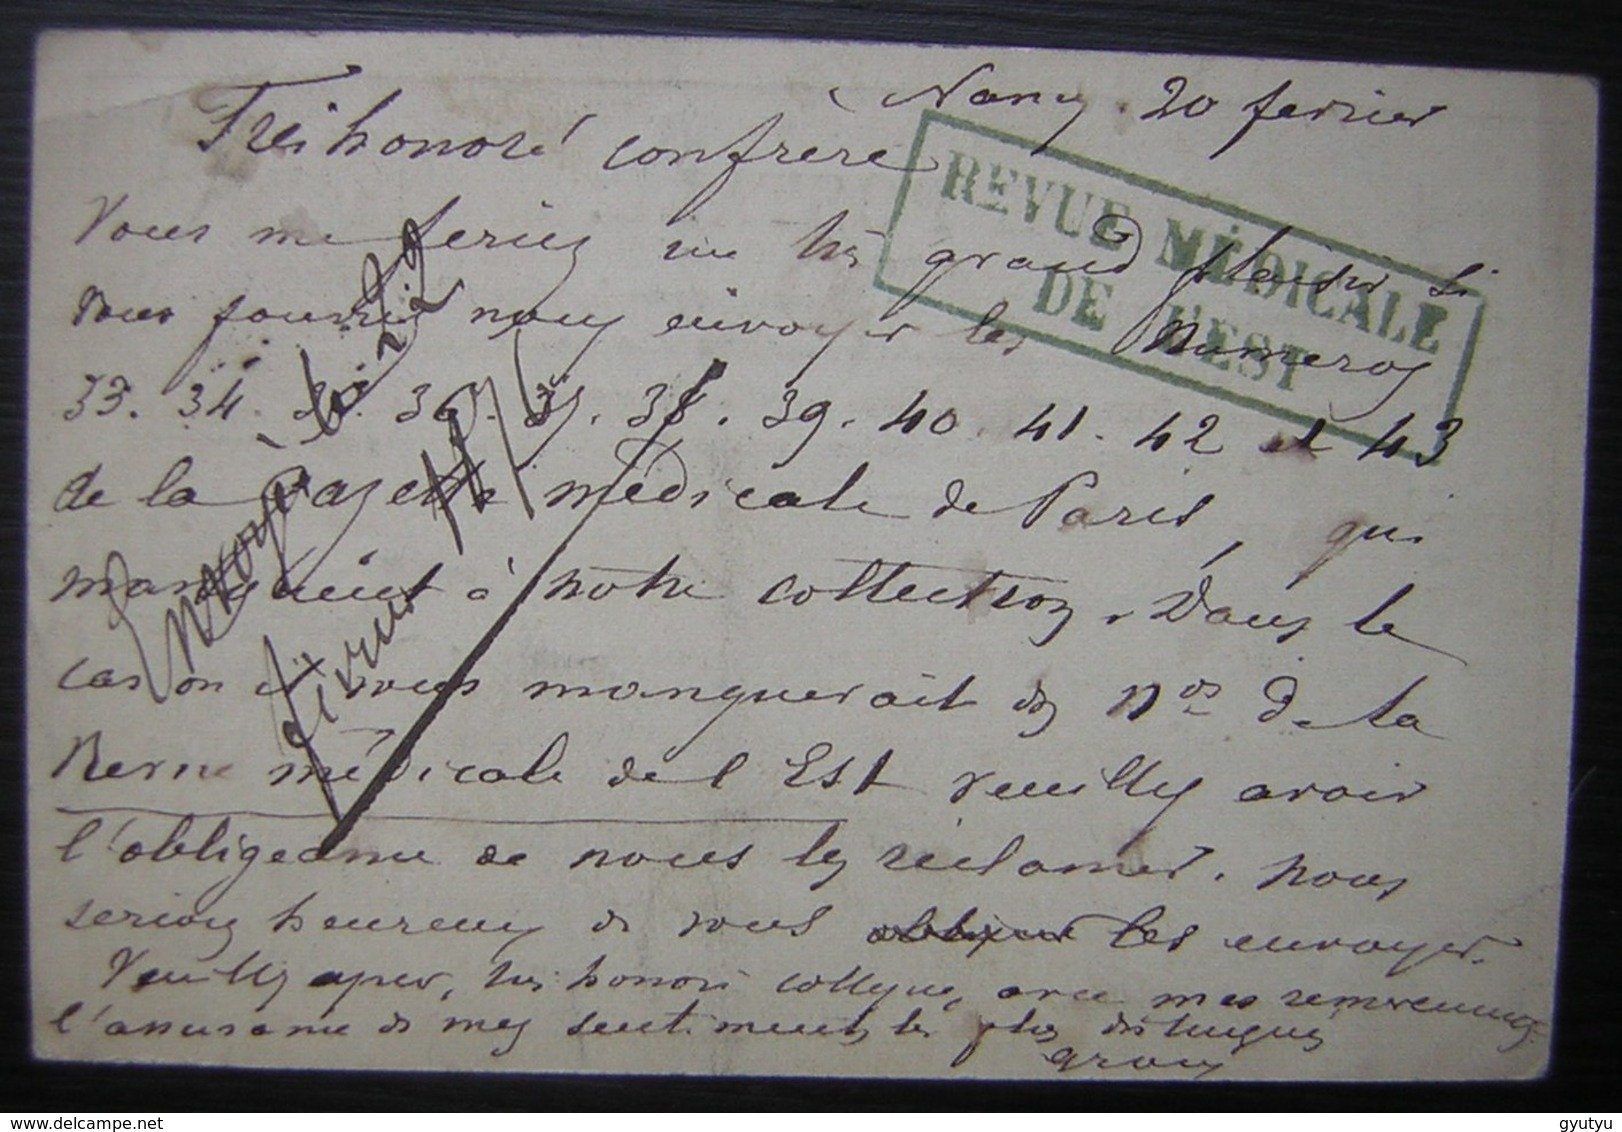 Nancy. 20 fevrier
Très honoré confrère
REVUE MÉDICALE
DE L'EST
Vous me feriez un très grand plaisir si
vous pourriez nous envoyer les numeros
33. 34. 35. 36. 37. 38. 39. 40. 41. 42 et 43
de la gazette médicale de Paris, qui
manquent à notre collection. Dans le
cas où il vous manquerait des nos de la
Revue médicale de l'Est veuillez avoir
l'obligeance de nous les réclamer. Nous
serions heureux de vous les envoyer.
Veuillez agréer, très honoré collègue, avec mes remerciements
l'assurance de mes sentiments les plus distingués
Envoyé le 22
février
delcampe.net
gyutyu